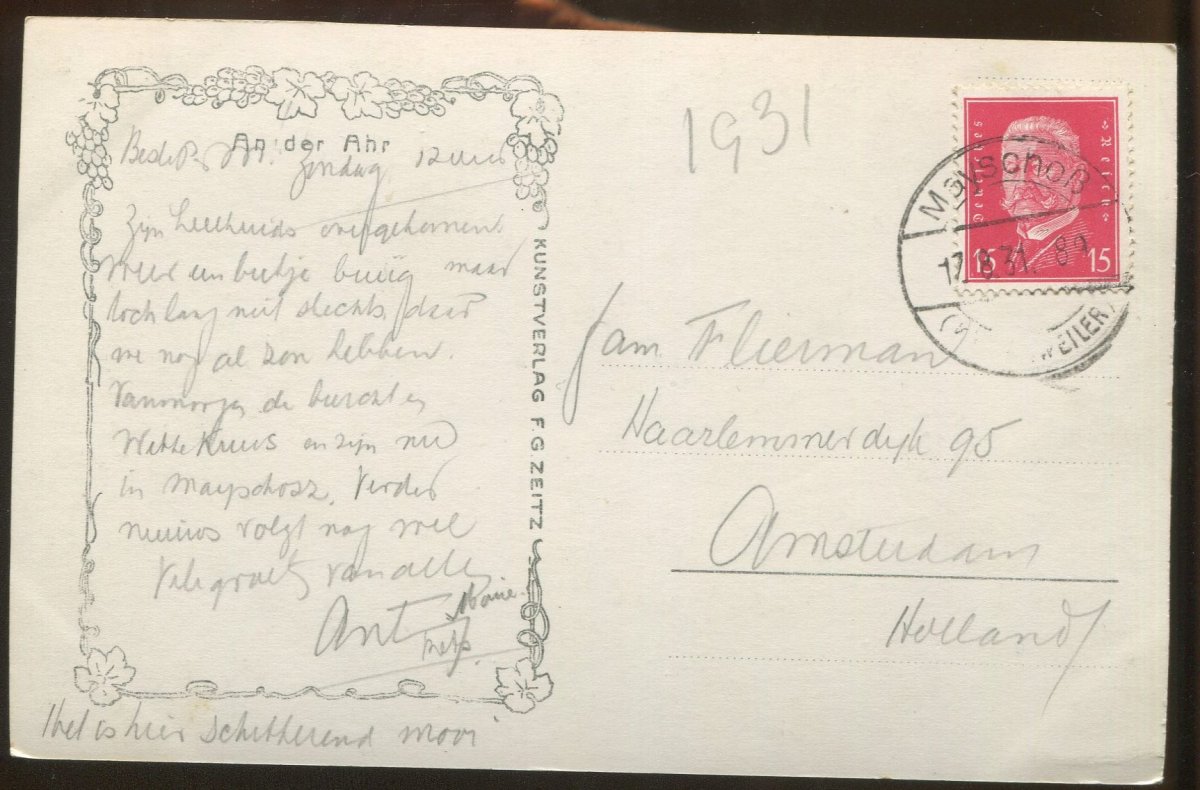 An der Ahr
Zondag 12 uur
Zijn overgekomen
weer een beetje buiïg maar
toch lang niet slechts daar
we nog al zon hebben.
Vanmorgen de burcht en
en zijn nu
in Mayschosz. Verder
nieuws volgt nog wel
Vele groeten van allen
Ant
Het is hier schitterend mooi
KUNSTVERLAG F.G ZEITZ
1931
Deutsches Reich
15 15
Mayschoß
17.8.31. 8
WEILER
Jam Flierman
Haarlemmerdijk 95
Amsterdam
Holland